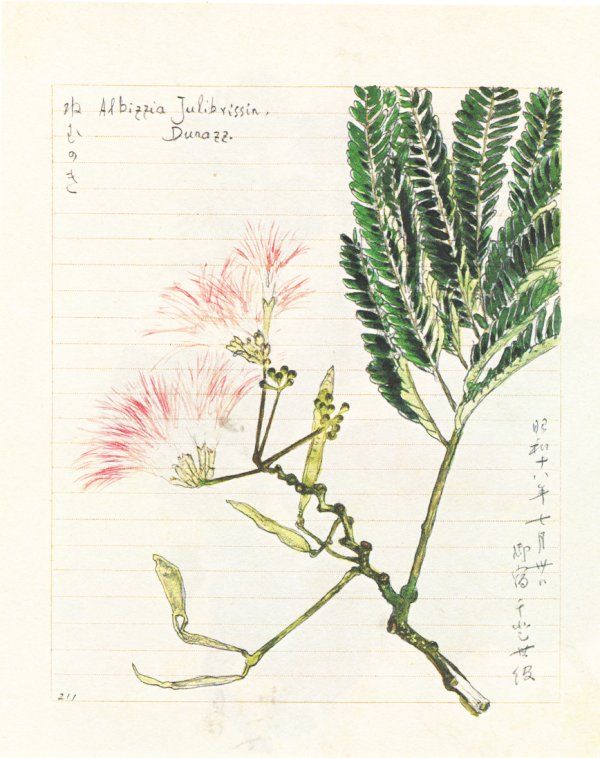 ねむのき
Albizzia Julibrissin.
Durazz.
昭和十八年七月廿日
御宿
211